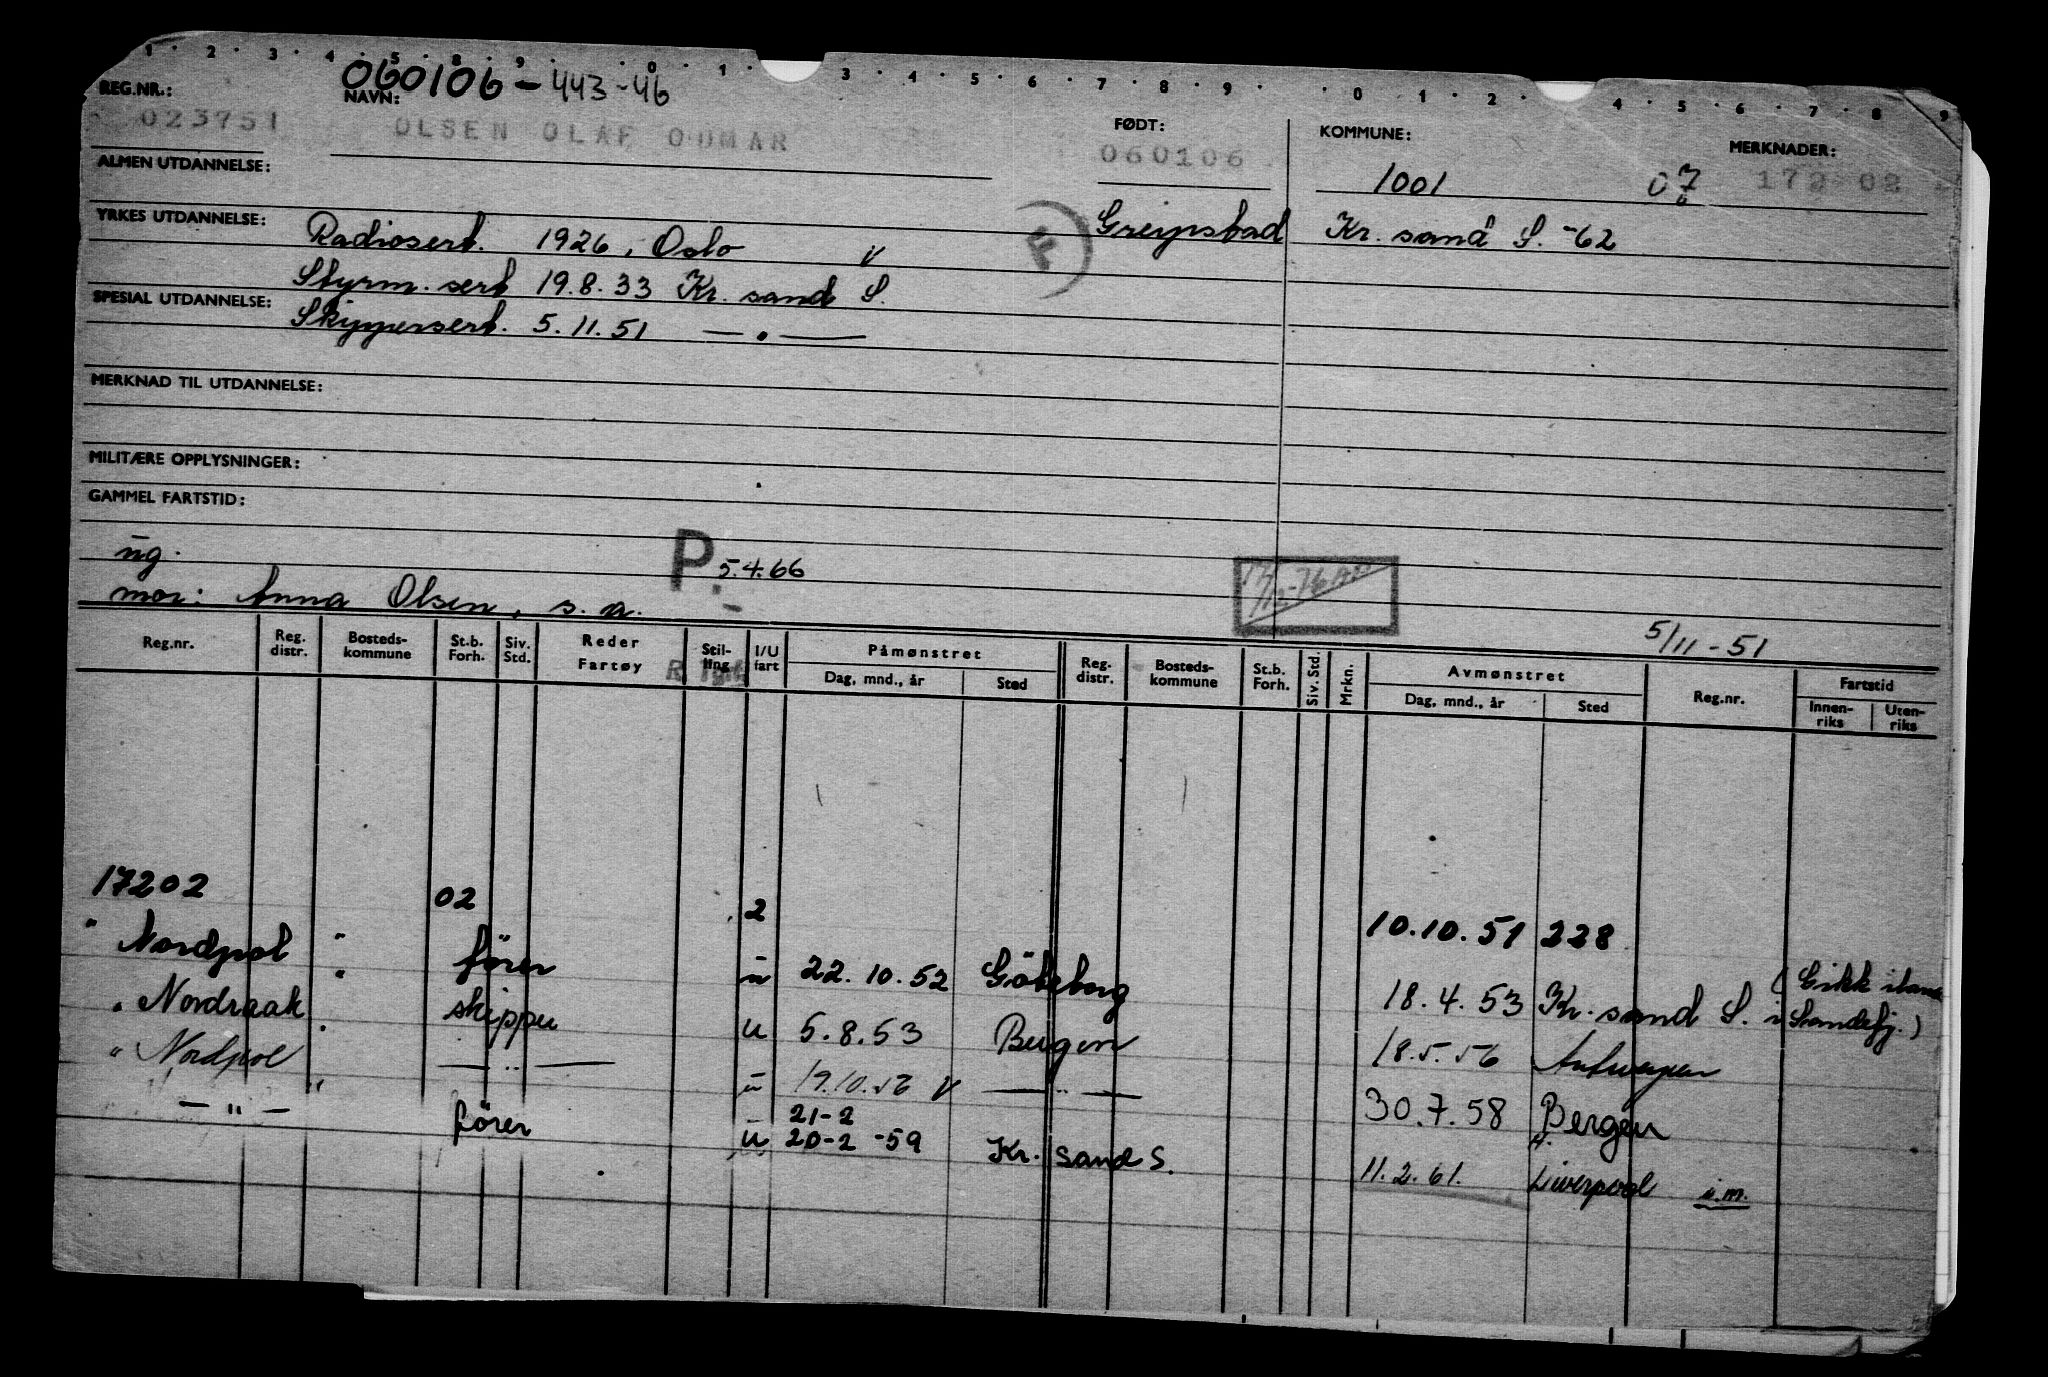 1 2 3 4 5 8 9 0 1 3 4 5 6 7 8 9 0 1 2 4 5 6 7 8 9
060106-443-46
REG.NR.: NAVN: FØDT: KOMMUNE: MERKNADER:
023751 OLSEN OLAF ODMAR 060106 1001 07 172 02
ALMEN UTDANNELSE:
YRKES UTDANNELSE: Radiosert. 1926, Oslo v F Greipstad Kr.sand S. -62
Styrm.sert 19.8.33 Kr.sand S.
SPESIAL UTDANNELSE: Skippersert. 5.11.51 — . —
MERKNAD TIL UTDANNELSE:
MILITÆRE OPPLYSNINGER:
GAMMEL FARTSTID:
ug. P. 5.4.66
mor: Anna Olsen, s.a. 5/11-51
Reg.nr. Reg. distr. Bosteds-kommune St.b. Forh. Siv. Std. Reder Fartøy Stil-ling I/U fart Påmønstret Dag, mnd., år Sted Reg. distr. Bosteds-kommune St.b. Forh. Siv. Std. Mrkn. Avmønstret Dag, mnd., år Sted Reg.nr. Fartstid Innen-riks Uten-riks
17202 02 2 10.10.51 228
" Nordpol " fører u 22.10.52 Göteborg 18.4.53 Kr.sand S. (Gikk iland i Sandefj.)
" Nordraak " skipper u 5.8.53 Bergen 18.5.56 Antwerpen
" Nordpol " — " — u 19.10.56 v — " — 30.7.58 Bergen
— " — fører u 21-2 20-2-59 Kr.sand S. 11.2.61. Liverpool i.m.